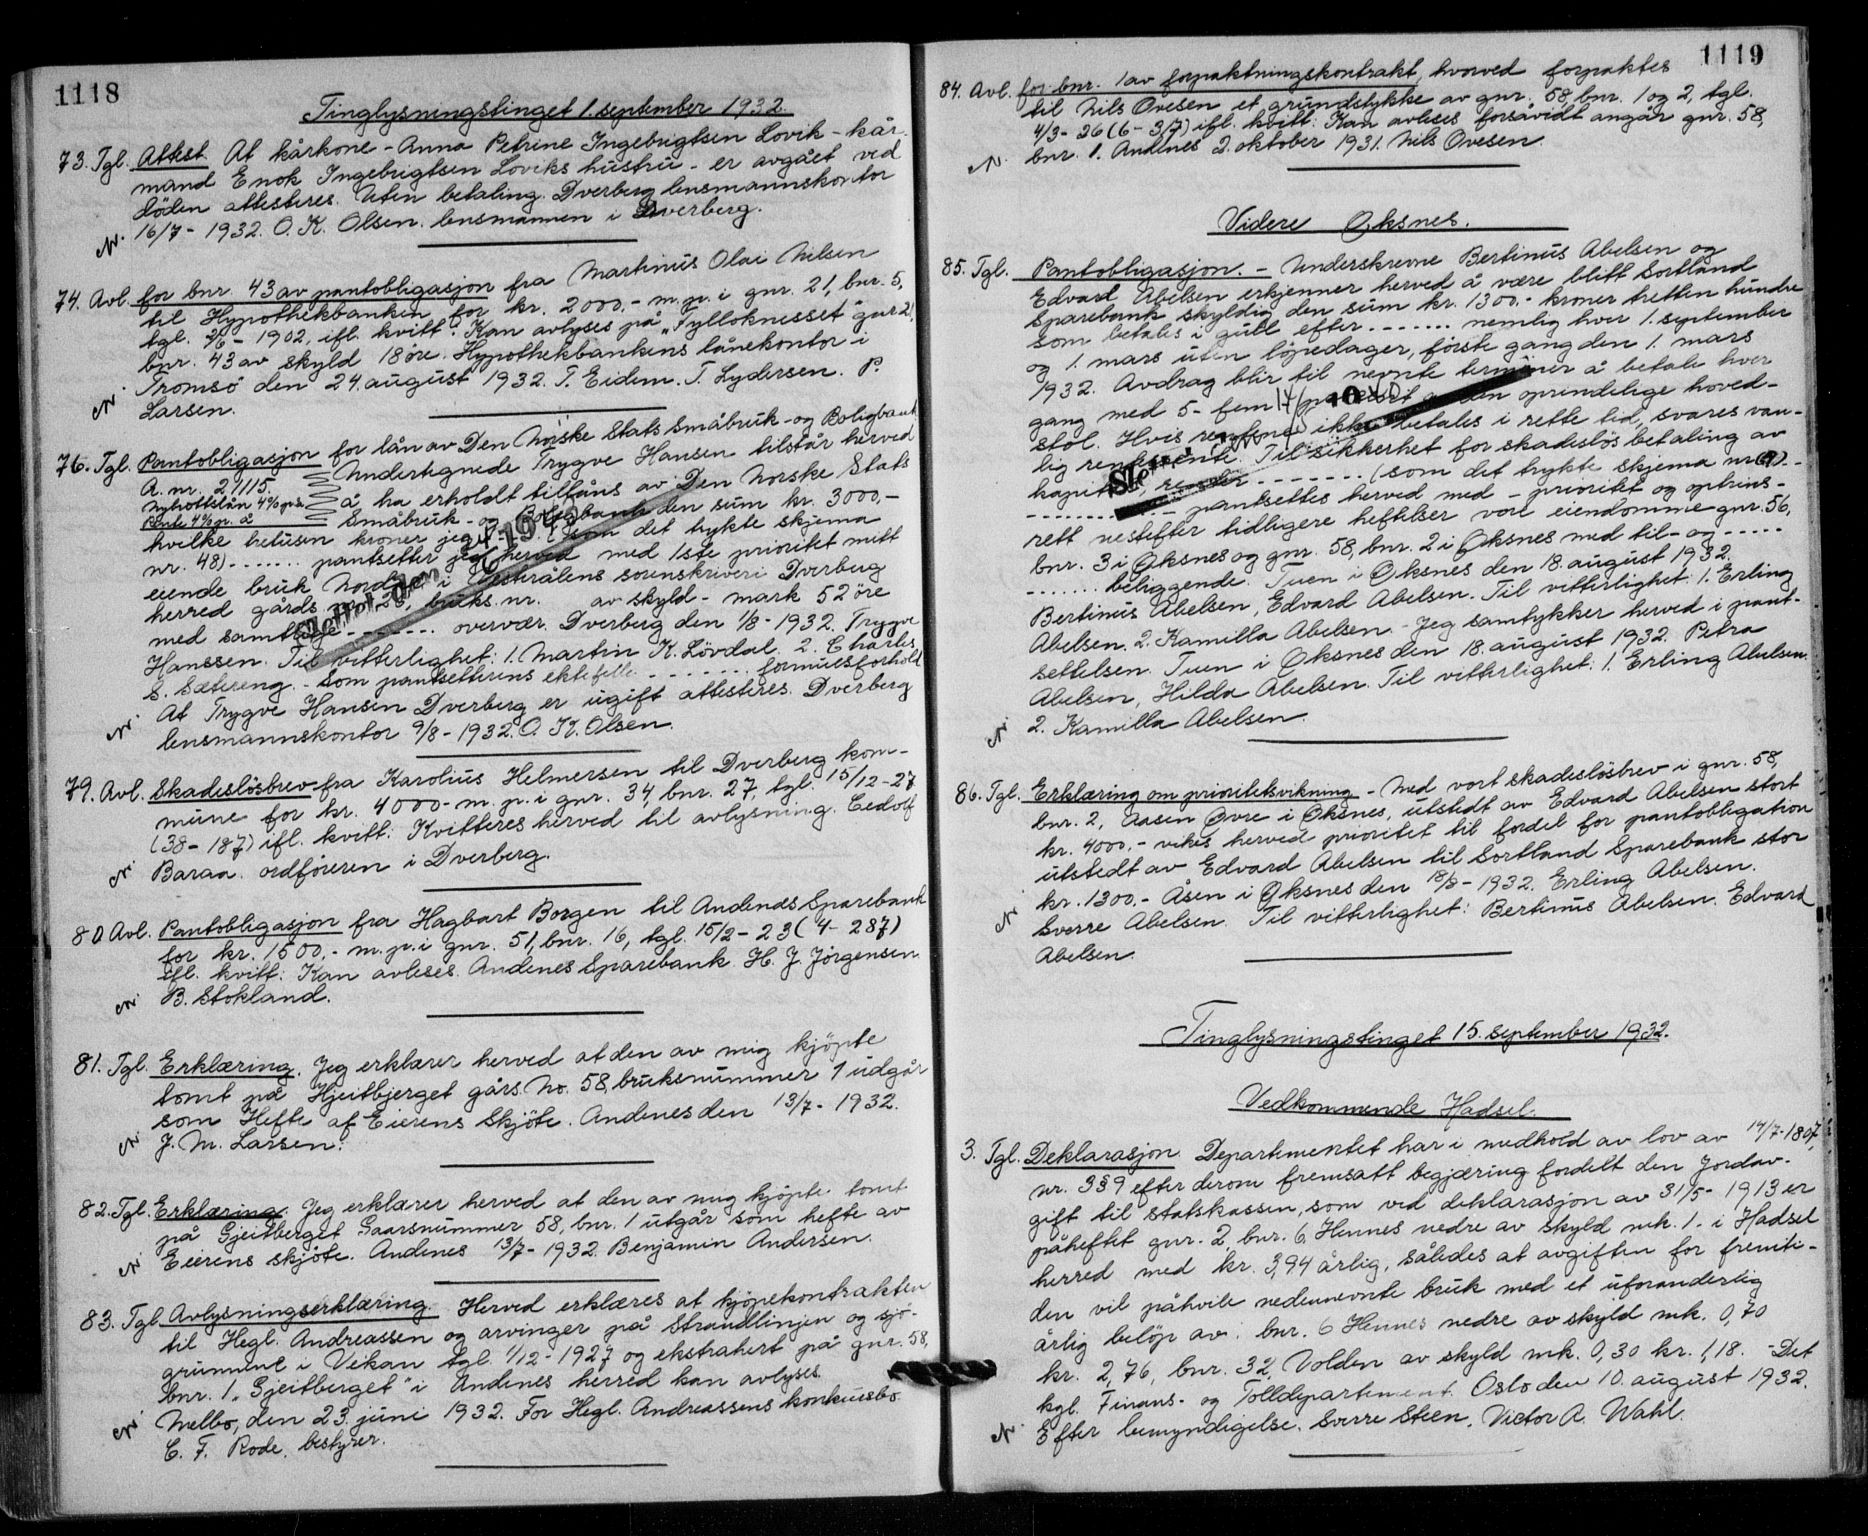 1118
Tinglysningstinget 1. september 1932.
73. Tgl. Attest. At kårkone - Anna Petrine Ingebrigtsen Lovik - kår-
mand Enok Ingebrigtsen Loviks hustru - er avgået ved
døden attesteres. Uten betaling. Dverberg lensmannskontor
N. 16/7 - 1932. O. K. Olsen. lensmannen i Dverberg.
74. Avl. for bnr. 43 av pantobligasjon fra Martinus Olai Nilsen
til Hypothekbanken for kr. 2000.- m.p. i gnr. 21, bnr. 5,
tgl. 2/6 - 1902, ifl. kvitt: Kan avlyses på "Fylloknesset gnr 21,
bnr. 43 av skyld 18 øre. Hypothekbankens lånekontor i
N. Tromsö den 24. august 1932. T. Eidem. T. Lydersen. P.
Larsen.
76. Tgl. Pantobligasjon for lån av Den Norske Stats Småbruk- og Boligbank
A. nr. 27115. Undertegnede Trygve Hansen tilstår herved
Nybrottslån 4% p.a. å ha erholdt tillåns av Den Norske Stats
Rente 4% p. å Småbruk- og Boligbank den sum kr. 3000,-
hvilke tretusen kroner jeg - - - (som det trykte skjema
nr. 48) - - - - - - - pantsetter jeg herved med 1ste prioritet mitt
eiende bruk Nord i Vesterålens sorenskriveri Dverberg
herred gårds 28, bruks. nr. av skyld - mark 52 øre
med samtlige - - - - - - - overvær. Dverberg den 1/8 - 1932. Trygve
Hanssen. Til vitterlighet: 1. Martin K. Lövdal. 2. Charles
S. Sætereng. - Som pantsetterens ektefelle - - - - - - - formuesforhold
At Trygve Hansen Dverberg er ugift attesteres. Dverberg
N. lensmannskontor 9/8 - 1932. O. K. Olsen.
Slettet den 19
79. Avl. Skadeslösbrev fra Karolius Helmersen til Dverberg kom-
mune for kr. 4000- m. p. i gnr. 34, bnr. 27, tgl. 15/12 - 27
(38 - 187) ifl. kvitt: Kvitteres herved til avlysning. Eedolf
N. Baraa. ordföreren i Dverberg.
80 Avl. Pantobligasjon fra Hagbart Borgen til Andenes Sparebank
for kr. 1500,- m. p. i gnr. 51, bnr. 16, tgl. 15/2 - 23 (4 - 287)
ifl. kvitt: Kan avleses. Andenes Sparebank. H. J. Jörgensen
N. B. Stokland.
81. Tgl. Erklæring. Jeg erklærer herved at den av mig kjöpte
tomt på Hjeitbjerget gårs. No. 58, bruksnummer 1 udgår
som Hefte af Eierens Skjöte. Andenes den 13/7 - 1932.
N. J. M. Larsen.
82. Tgl. Erklæring. Jeg erklærer herved at den av mig kjöpte tomt
på Gjeitberget Gaarsnummer 58, bnr. 1 utgår som hefte av
N. Eierens skjöte. Andenes 13/7 - 1932. Benjamin Andersen.
83. Tgl Avlysningserklæring. Herved erklæres at kjöpekontrakten
til Hegl. Andreassen og arvinger på Strandlinjen og sjö-
grunnene i Veikan tgl. 1/12 - 1927 og ekstrahert på gnr. 58,
bnr. 1, "Gjeitberget" i Andenes herred kan avlyses.
N. Melbo, den 23. juni 1932. For Hegl. Andreassens konkursbo.
C. F. Rode, bestyrer.
1119
84. Avl. for bnr. 1 av forpaktningskontrakt, hvorved forpaktes
til Nils Ovesen et grundstykke av gnr. 58, bnr. 1 og 2, tgl.
4/3 - 26 (6 - 37) ifl. kvitt: Kan avleses forsåvidt angår gnr. 58,
N. bnr. 1. Andenes 2. oktober 1931. Nils Ovesen.
Videre Öksnes.
85. Tgl. Pantobligasjon. - Underskrevne Bertinus Abelsen og
Edvard Abelsen erkjenner herved å være blitt Sortland
Sparebank skyldig den sum kr. 1300.- kroner tretten hundre
som betales i gull efter - - - - - - - nemlig hver 1. september
og 1. mars uten löpedager, förste gang den 1. mars
1932. Avdrag blir til nevnte terminer å betale hver
gang med 5- fem av den oprindelige hoved-
stol. Hvis rentene ikke betales i rette tid, svares van-
lig rentesrente. Til sikkerhet for skadeslös betaling av
kapital, renter - - - - - - - (som det trykte skjema nr. (9) - -
- - - - - - - - pantsettes herved med - prioritet og optrins-
rett nestefter tidligere heftelser vore eiendomme gnr. 56,
bnr. 3 i Öksnes og gnr. 58, bnr. 2 i Öksnes med til- og - - - - -
- - - - - - - beliggende. Tuen i Öksnes den 18. august 1932.
Bertinus Abelsen, Edvard Abelsen. Til vitterlighet: 1. Erling
Abelsen. 2. Kamilla Abelsen. - Jeg samtykker herved i pant-
settelsen. Tuen i Öksnes den 18. august 1932. Petra
Abelsen, Hilda Abelsen. Til vitterlighet: 1. Erling Abelsen.
N. 2. Kamilla Abelsen.
86. Tgl. Erklæring om prioritetsvikning - Med vort skadeslösbrev i gnr. 58,
bnr. 2, Aasen Övre i Öksnes, utstedt av Edvard Abelsen stort
kr. 4000.- vikes herved prioritet til fordel for pantobligation
utstedt av Edvard Abelsen til Sortland Sparebank stor
kr. 1300.- Åsen i Öksnes den 18/8 - 1932. Erling Abelsen.
N. Sverre Abelsen. Til vitterlighet: Bertinus Abelsen. Edvard
Abelsen.
Tinglysningstinget 15. september 1932.
Vedkommende Hadsel.
3. Tgl. Deklarasjon. Departementet har i medhold av lov av 14/7-1807,
nr. 3 § 9 efter derom fremsatt begjæring fordelt den Jordav-
gift til statskassen, som ved deklarasjon av 31/5 - 1913 er
påheftet gnr. 2, bnr. 6, Hennes nedre av skyld mk. 1.- i Hadsel
herred med kr. 3,94 årlig, således at avgiften for fremti-
den vil påhvile nedennevnte bruk med et uforanderlig
årlig belöp av: bnr. 6 Hennes nedre av skyld mk. 0,70
kr. 2,76, bnr. 32, Volden av skyld mk. 0,30 kr. 1,18. - Det
kgl. Finans- og Tolldepartement. Oslo den 10. august 1932.
N. Efter bemyndigelse. Sverre Steen. Victor A. Wahl.